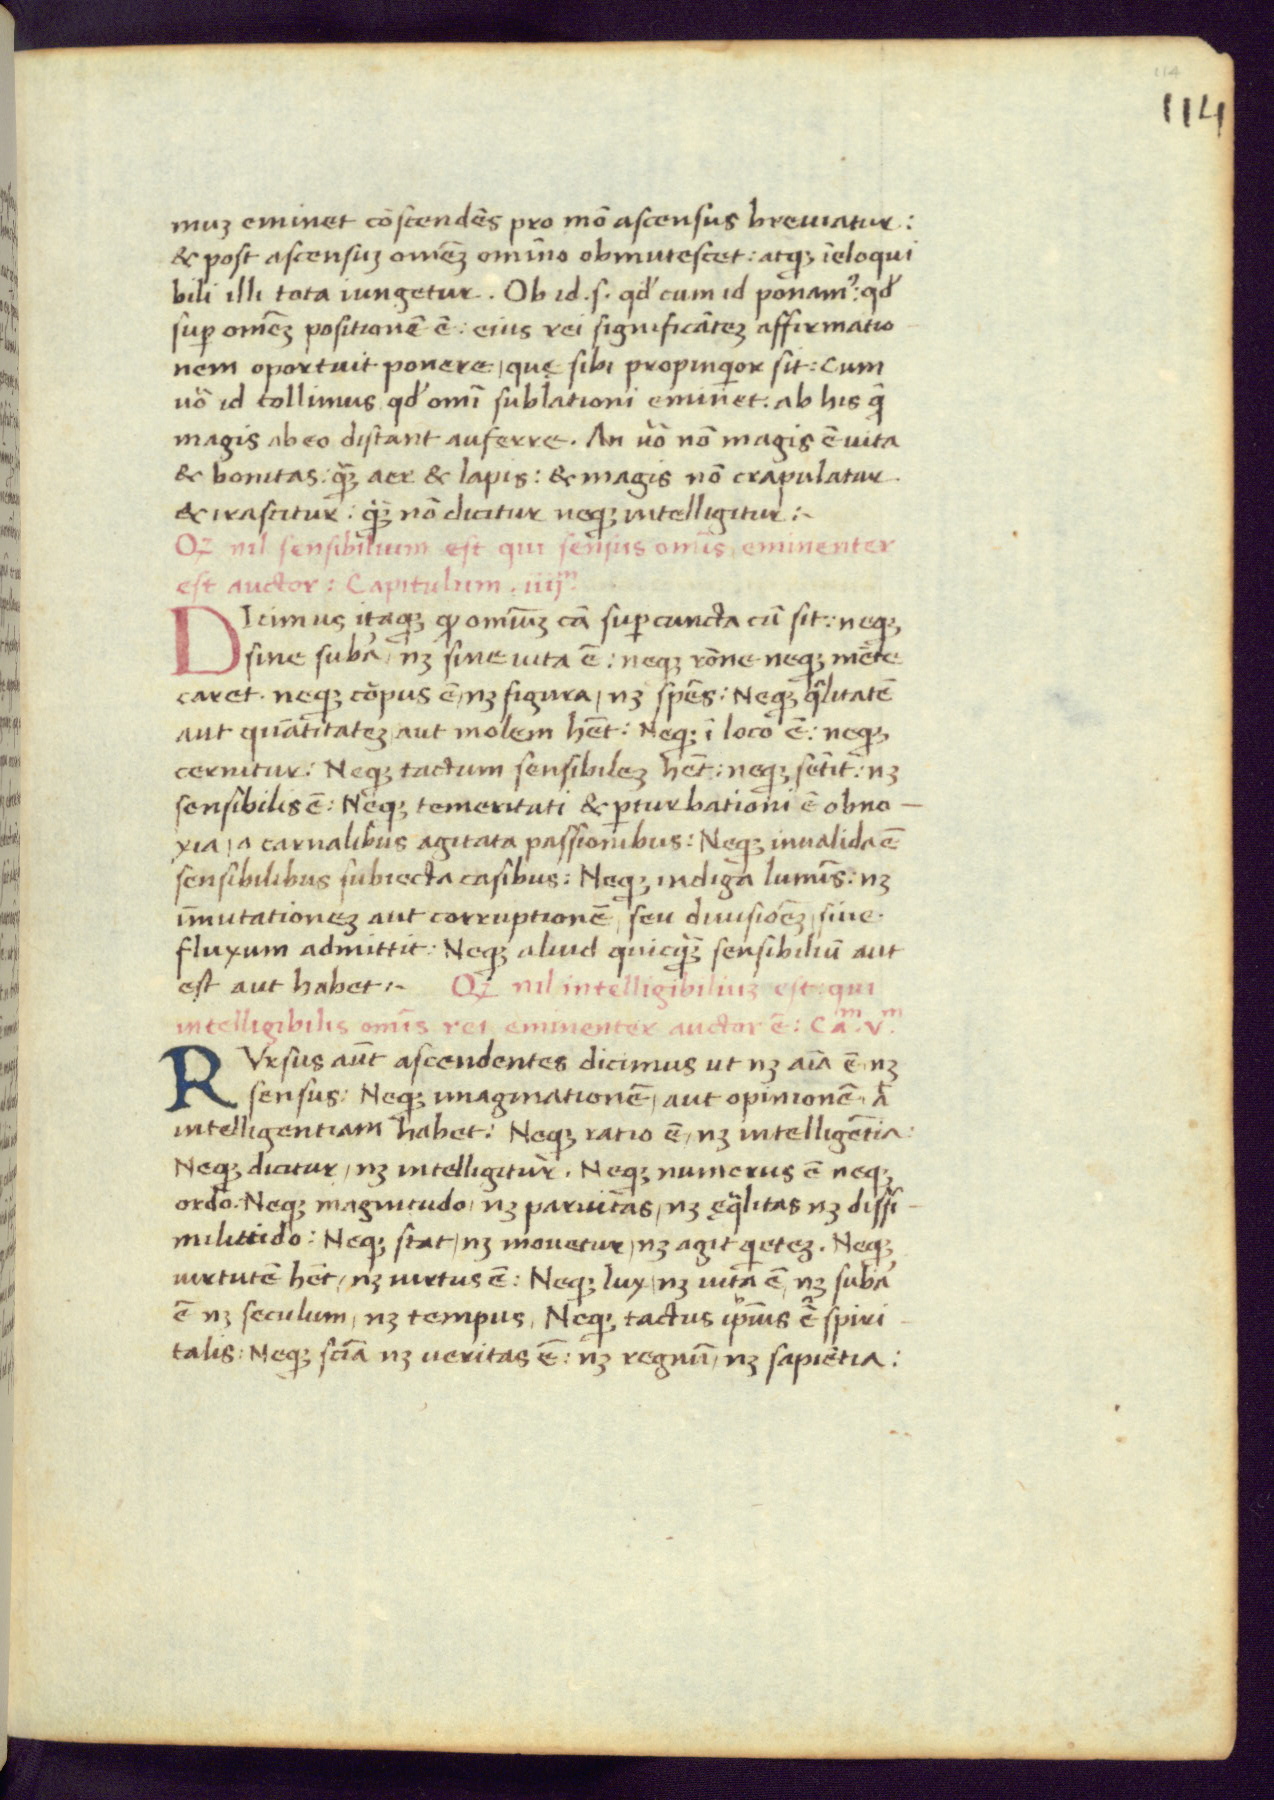 114
114
muꝫ eminet cōscendēs pro mō ascensus breuiatur:
& post ascensuꝫ omēꝫ omīno obmutescet: atqꝫ īeloqui
bili illi tota iungetur. Ob id .s. qđ cum id ponamꝰ: qđ
suꝑ omēꝫ positionē ē: eius rei significātēꝫ affirmatio
nem oportuit ponere, quę sibi propinqior sit: Cum
uō id tollimus qđ omī sublationi eminet: ab his q̄
magis ab eo distant auferre. An uō nō magis ē uita
& bonitas: qꝫ̄ aer & lapis: & magis nō crapulatur
& irascitur: qꝫ̄ nō dicitur neqꝫ intelligitur:~
Qꝫ nil sensibilium est qui sensus omīs eminenter
est auctor: Capitulum. iiijᵐ.
DIcimus itaqꝫ ꝙ omiūꝫ cā suꝑ cuncta cū sit: neqꝫ
sine subᵃ, nꝫ sine uita ē: neqꝫ rōne neqꝫ mēte
caret. neqꝫ cōpus ē, nꝫ figura, nꝫ spēs: Neqꝫ q̄litatē
aut quātitateꝫ aut molem hēt: Neqꝫ ī loco ē: neqꝫ
cernitur: Neqꝫ tactum sensibileꝫ hēt: neqꝫ sētit: nꝫ
sensibilis ē: Neqꝫ temeritati & ꝑturbationi ē obno-
xia, a carnalibus agitata passionibus: Neqꝫ inualida ē
sensibilibus subiecta casibus: Neqꝫ indiga lumīs: nꝫ
īmutationeꝫ aut corruptionē, seu diuisiōeꝫ, siue
fluxum admittit: Neqꝫ aliud quicqꝫ̄ sensibiliū aut
est aut habet:~ Qꝫ nil intelligibiliuꝫ est: qui
intelligibilis omīs rei eminenter auctor ē: Caᵐ. vᵐ.
RVrsus aūt ascendentes dicimus ut nꝫ aīa ē, nꝫ
sensus: Neqꝫ imaginationē, aut opinionē, ā
intelligentiam habet: Neqꝫ ratio ē, nꝫ intelligētia:
Neqꝫ dicitur, nꝫ intelligitur. Neqꝫ numerus ē neqꝫ
ordo. Neqꝫ magnitudo, nꝫ paruitas, nꝫ ęq̄litas nꝫ dissi-
militudo: Neqꝫ stat, nꝫ mouetur, nꝫ agit qieteꝫ. Neqꝫ
uirtutē hēt, nꝫ uirtus ē: Neqꝫ lux, nꝫ uita ē, nꝫ subᵃ
ē nꝫ seculum, nꝫ tempus, Neqꝫ tactus ip̄iūs ē spiri-
talis: Neqꝫ scīa nꝫ ueritas ē: nꝫ regnū, nꝫ sapiētia: